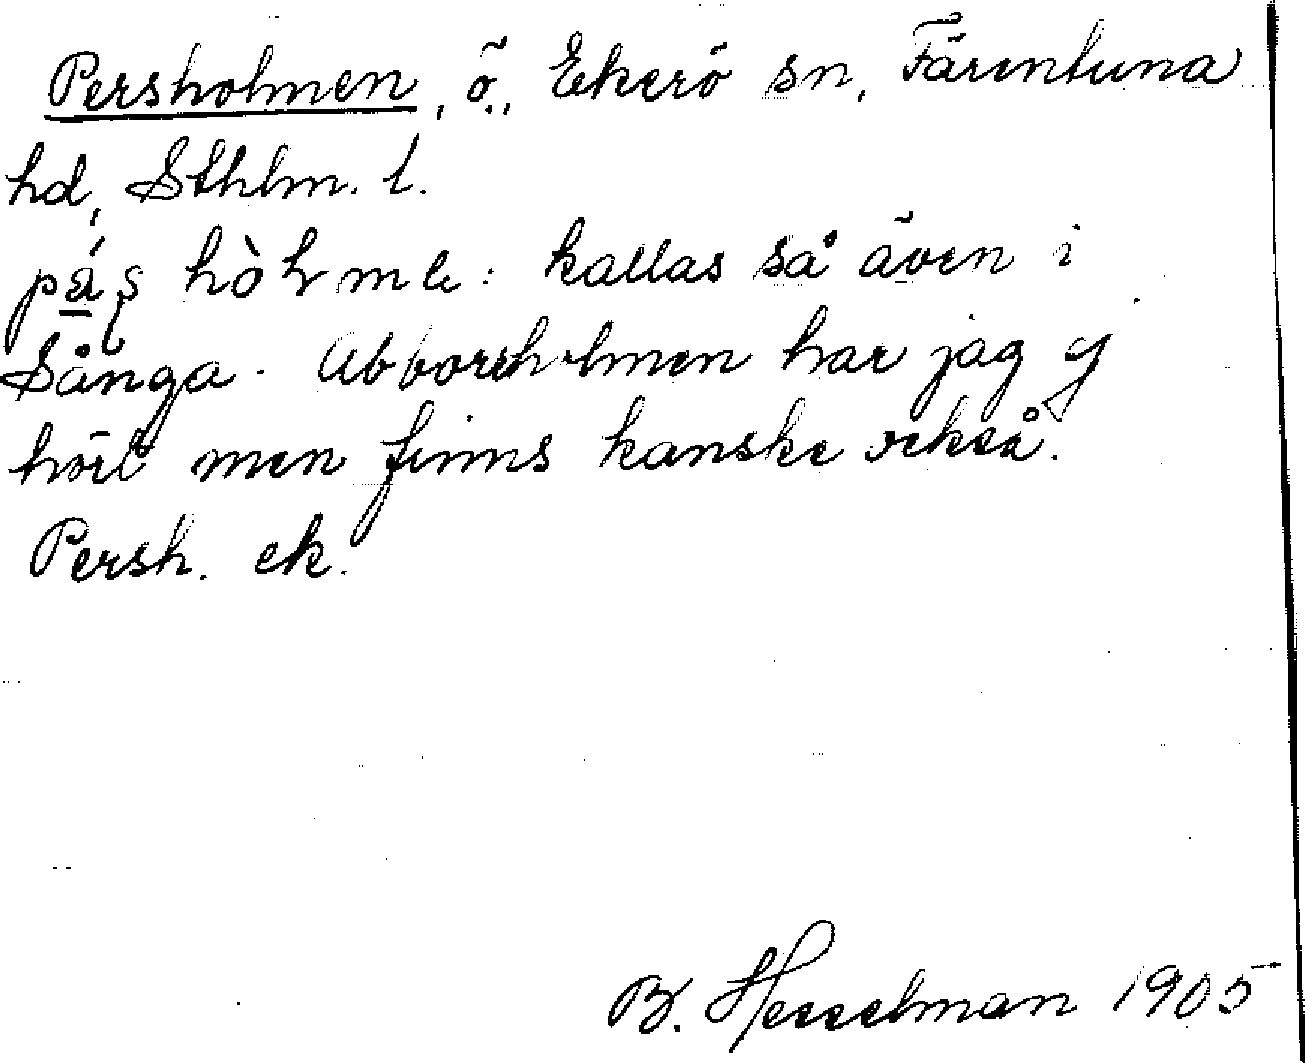 Persholmen, ö., Ekerö sn, Färentuna
hd, Sthlm. l.
kallas så även i
Sånga. Abborrholmen har jag ej
hört men finns kanske också.
Persh. ek.
B. Hesselman 1905